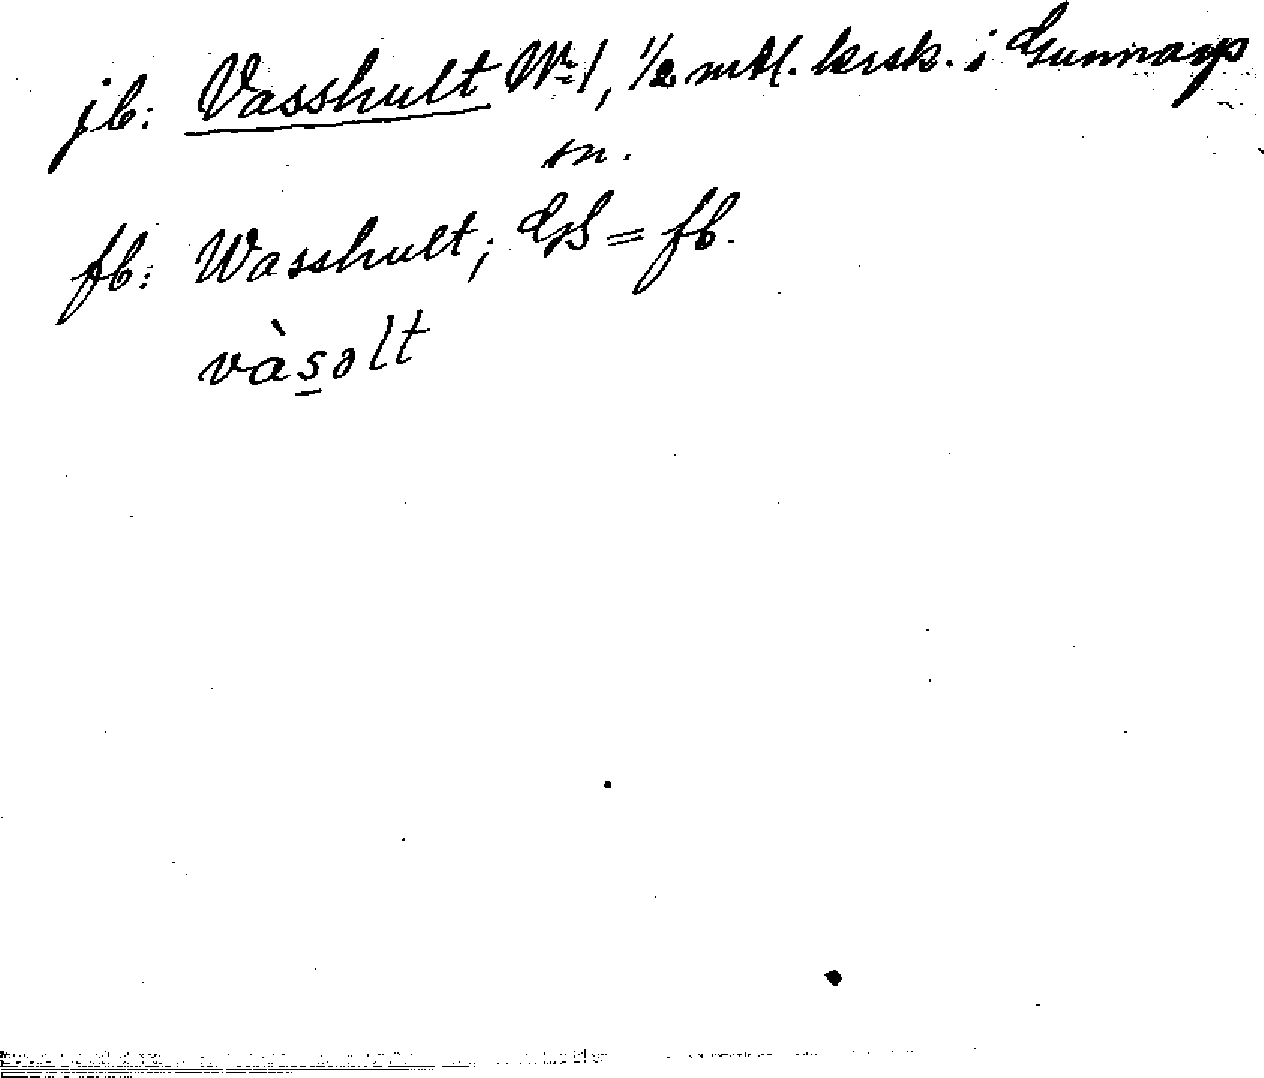 jb: Vasshult No 1, 1/2 mtl. krsk. i Gunnarps
sn.
fb: Wasshult; GS = fb.
vàsəlt